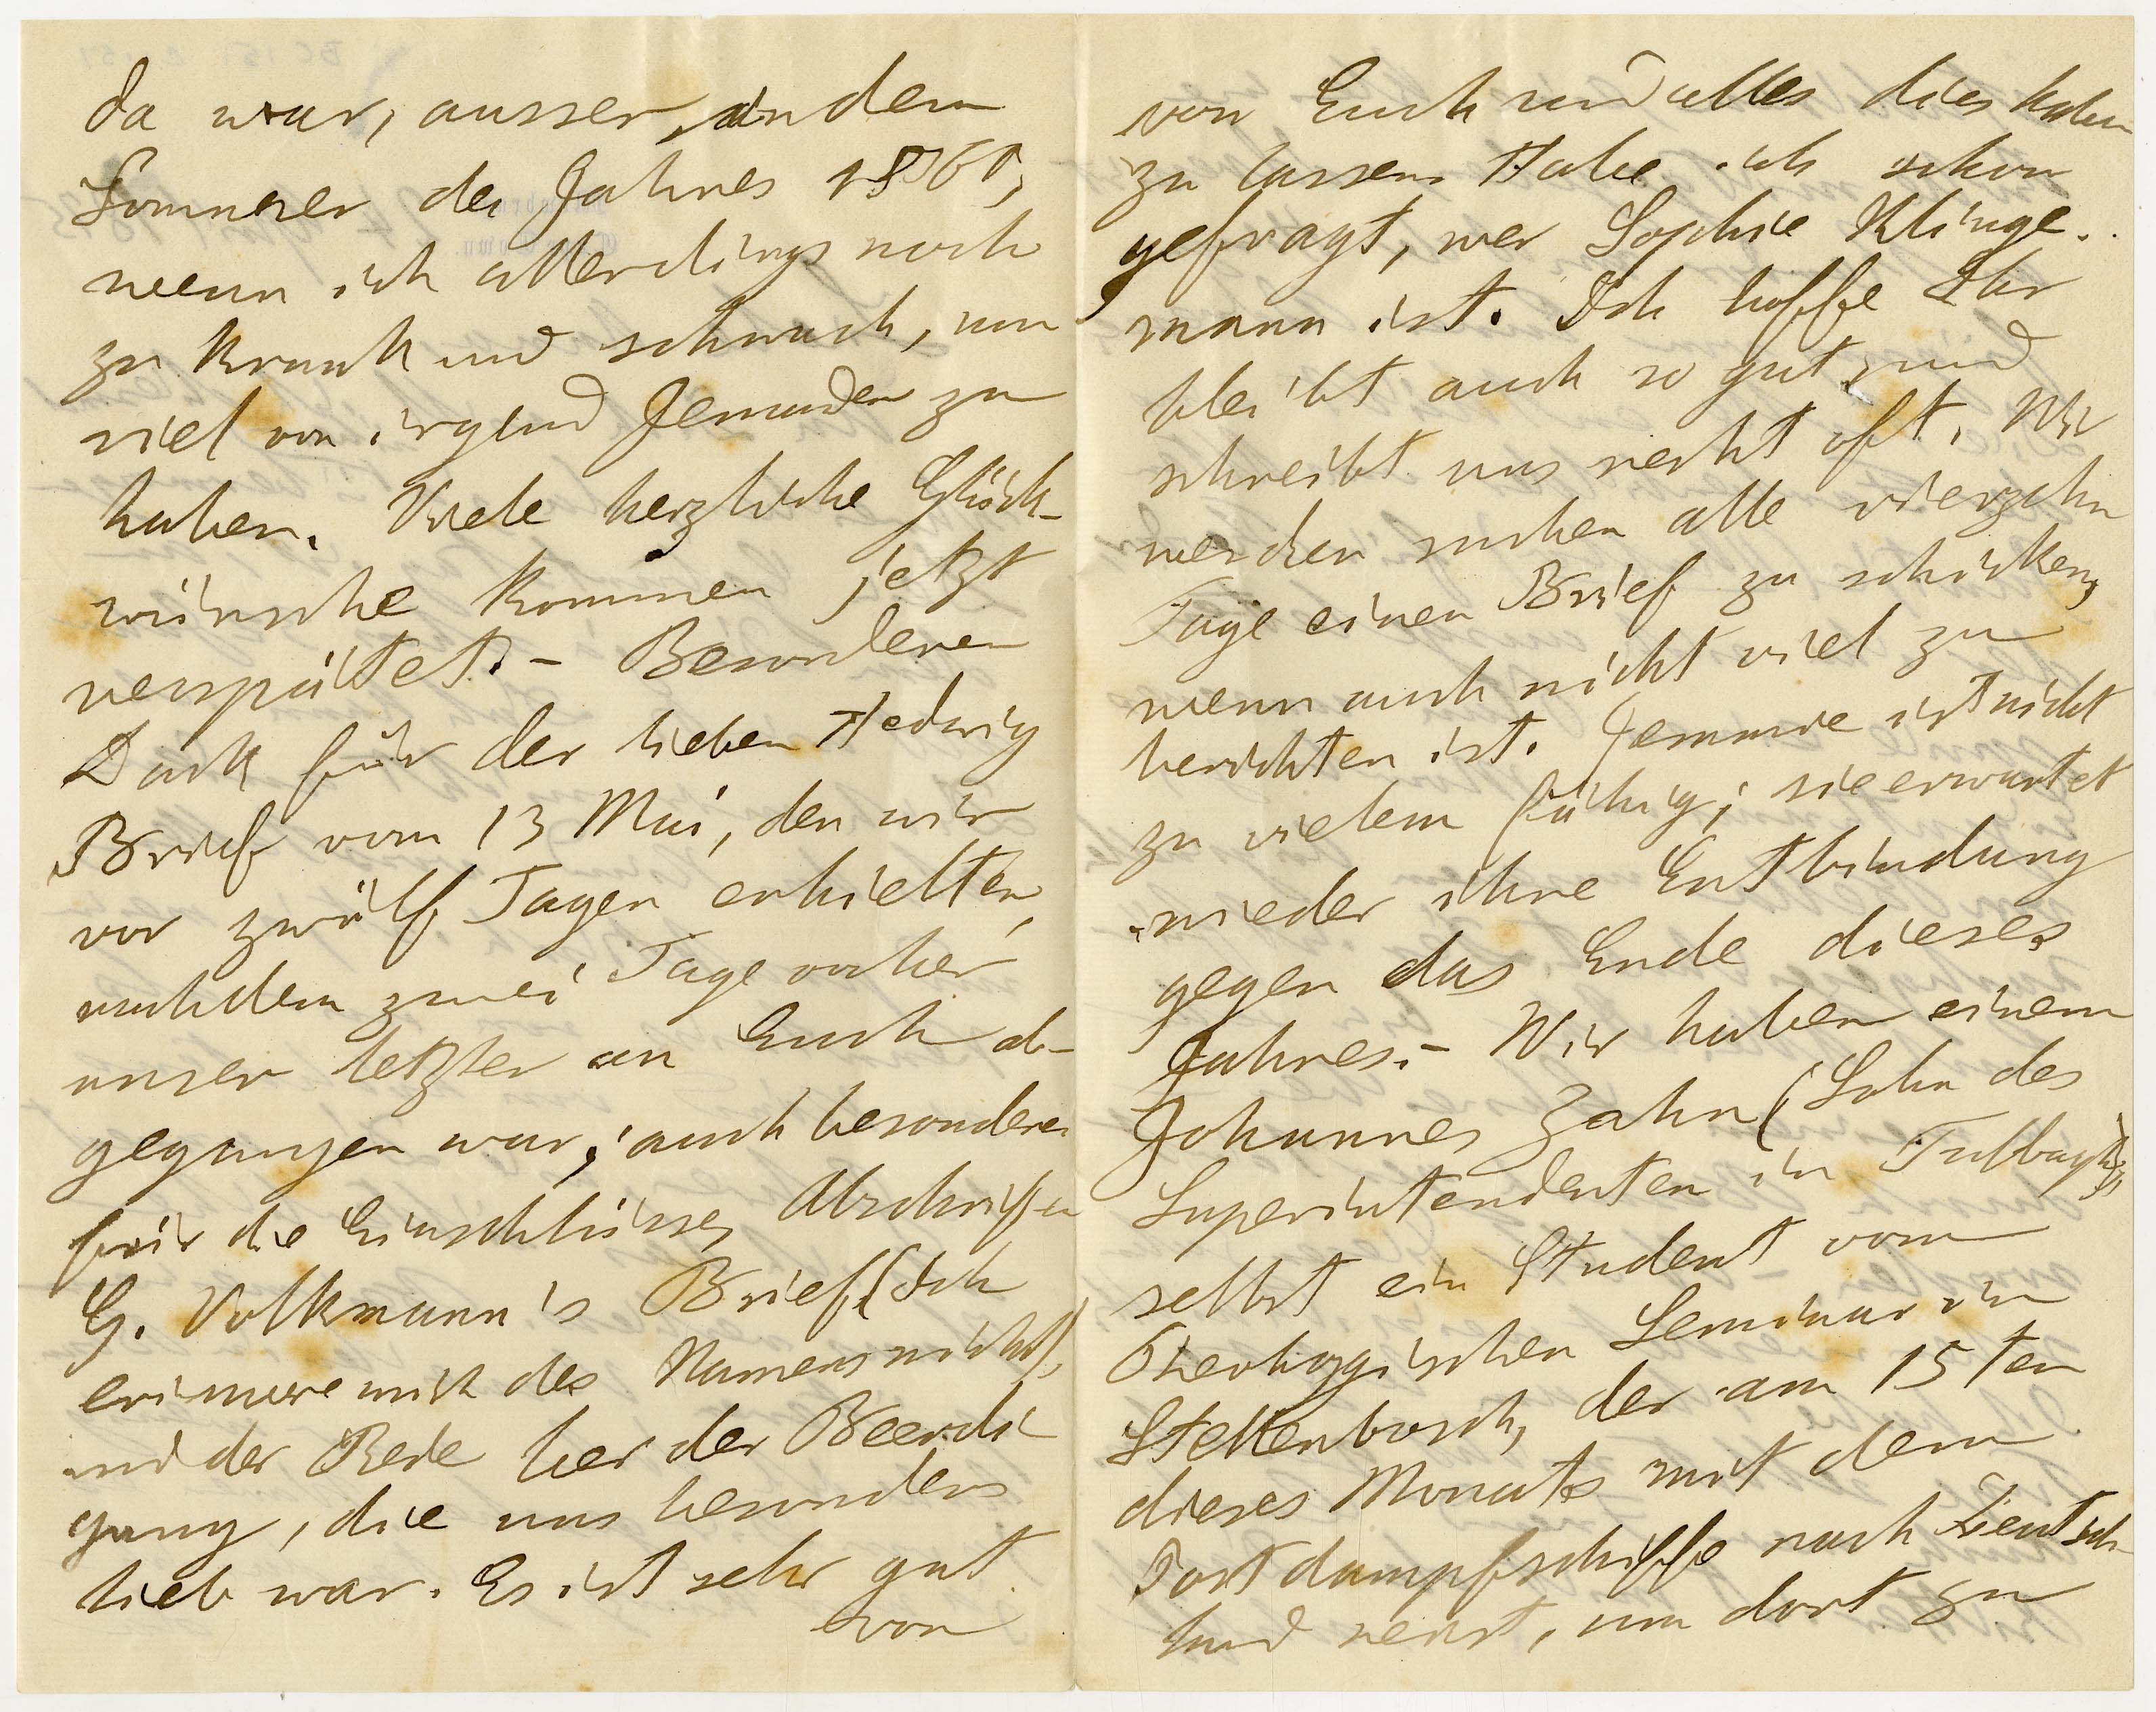 da war, ausser in dem
Sommer des Jahres 1860,
wenn ich allerdings noch
zu krank und schwach, um
viel von irgend Jemanden zu
haben. Viele herzliche Glück-
wünsche kommen jetzt
verspätet. - Besonderen
Dank für der lieben Hedwig
Brief vom 13 Mai, den wir
vor zwölf Tagen erhielten,
nachdem zwei Tage vorher
unser letzter an Euch ab-
gegangen war; auch besonderen
für die Einschlüsse, Abschriften
G. Volkmann's Brief (Ich
erinnere mich des Namens nicht)
und der Rede bei der Beerdi
gung, die uns besonders
lieb war. Es ist sehr gut
von
von Euch uns alles dies haben
zu lassen. Habe ich schon
gefragt, wer Sophie Klinge.
mann ist. Ich hoffe Ihr
bleibt auch so gut, und
schreibt uns recht oft. Wir
werden suchen alle vierzehn
Tage einen Brief zu schicken,
wenn auch nicht viel zu
berichten ist. Jemmie ist nicht
zu vielem fähig; sie erwartet
wieder ihre Entbindung
gegen das Ende dieses
Jahres. - Wir haben einem
Johannes Zahn (Sohn des
Superintendenten in Tulbagh),
selbst ein Student vom
Theologischen Seminar in
Stellenbosch, der am 15ten
dieses Monats mit dem
Postdampfschiffe nach Deutsch-
land reist, um dort zu